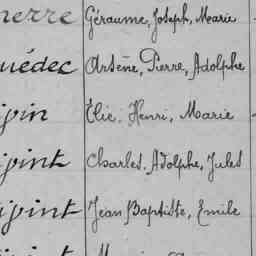 nerre Géraume, Joseph, Marie
uédec Arsène, Pierre, Adolphe
ipin Élie, Henri, Marie
ipint Charles, Adolphe, Jules
ipint Jean Baptiste, Emile